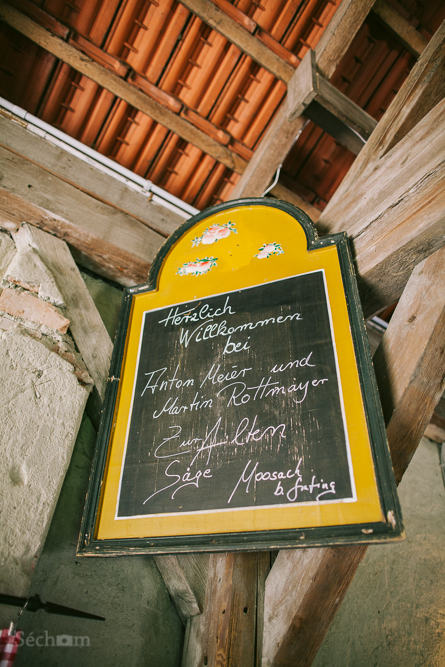 Herzlich
Willkommen
bei
Anton Meier und
Martin Rottmayer
Zur Alten
Säge Moosach
b. Grafing
Sécham